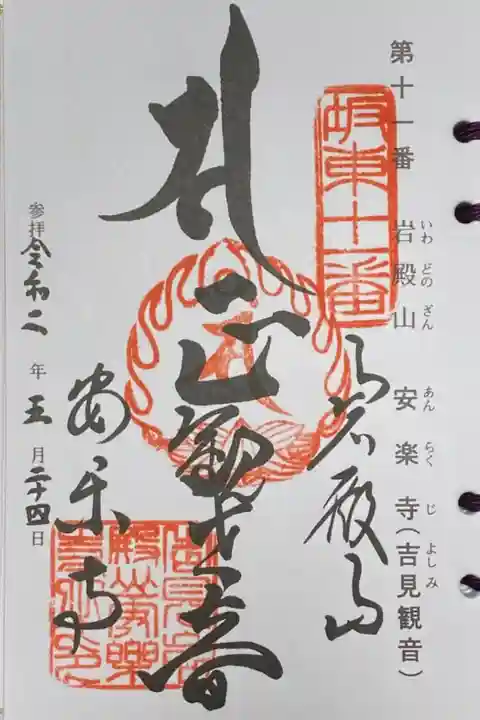 第十一番 岩殿山 安楽寺(吉見観音)
いわ どの ざん あん らく じ よしみ
坂東十一番
岩殿山
正観世音
安楽寺
参拝 令和二年五月二十四日